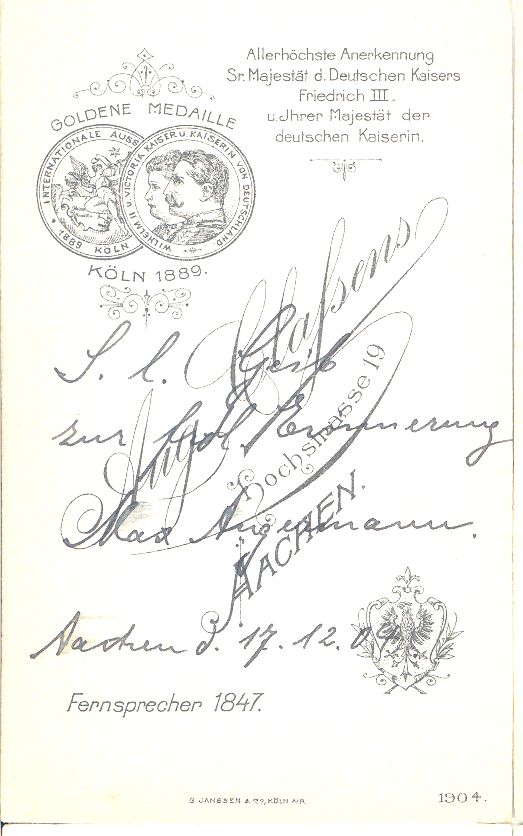 Allerhöchste Anerkennung
Sr. Majestät d. Deutschen Kaisers
Friedrich III.
u. Jhrer Majestät der
deutschen Kaiserin.
GOLDENE MEDAILLE
INTERNATIONALE AUSS
1889 KÖLN
WILHELM II U. VICTORIA KAISER U. KAISERIN VON DEUTSCHLAND
KÖLN 1889.
Aug. Classens
Hochstrasse 19
AACHEN.
S. l.
zur frdl. Erinnerung
Max Angermann.
Aachen d. 17. 12. 04
Fernsprecher 1847.
G JANSSEN & Co, KÖLN A/R.
1904.